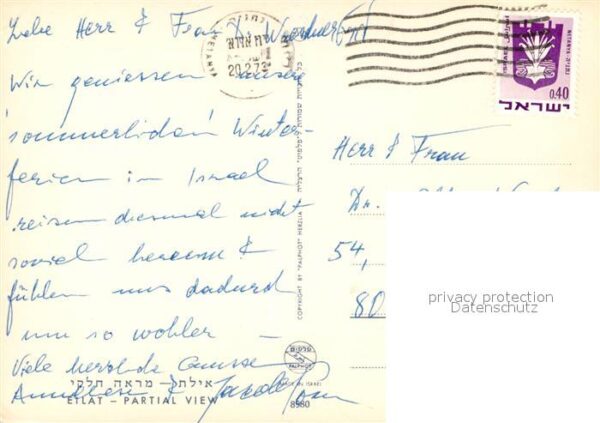 Liebe Herr & Frau
Wir geniessen unsere
"sommerlichen" Winter-
ferien in Israel
reisen diesmal nicht
soviel herum &
fühlen uns dadurch
um so wohler —
Viele herzliche Grüsse
Anneliese & Jacob
אילת – מראה חלקי
ETLAT – PARTIAL VIEW
COPYRIGHT BY "PALPHOT" HERZLIA
MADE IN ISRAEL
PALPHOT
8980
NETANYA
20.2.73
NETANYA
נתניה
0.40
ישראל
Herr & Frau
Dr.
54,
80
privacy protection
Datenschutz